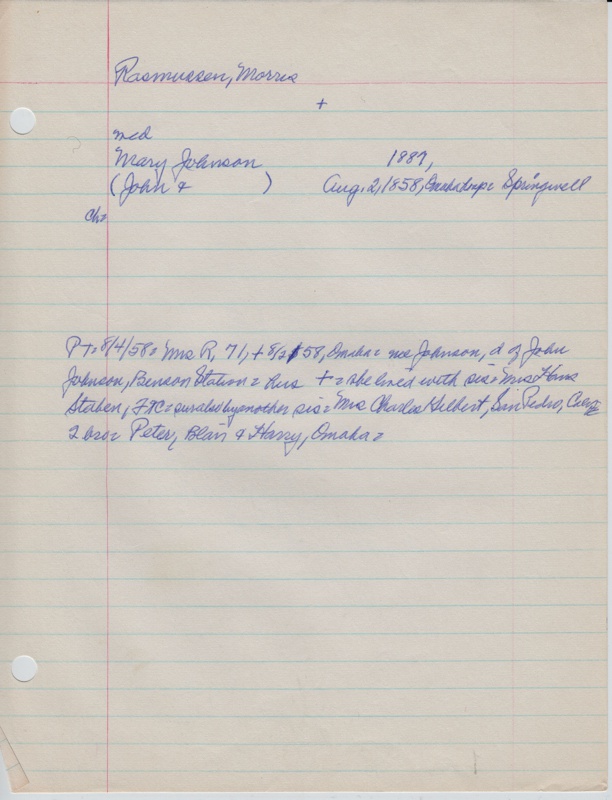 Rasmussen, Morris
+
med
Mary Johnson 1887,
(John & ) Aug. 2, 1858, Omaha= Springwell
Ch=
Pt=8/4/58= Mrs R, 71, + 8/2/58, Omaha= nee Johnson, d of John
Johnson, Benson Station= hus += she lived with sis= Mrs Hans
Staben, = survived by another sis= Mrs Charles Hilbert, San Pedro, Calif=
2 bro= Peter, Blair & Harry, Omaha=